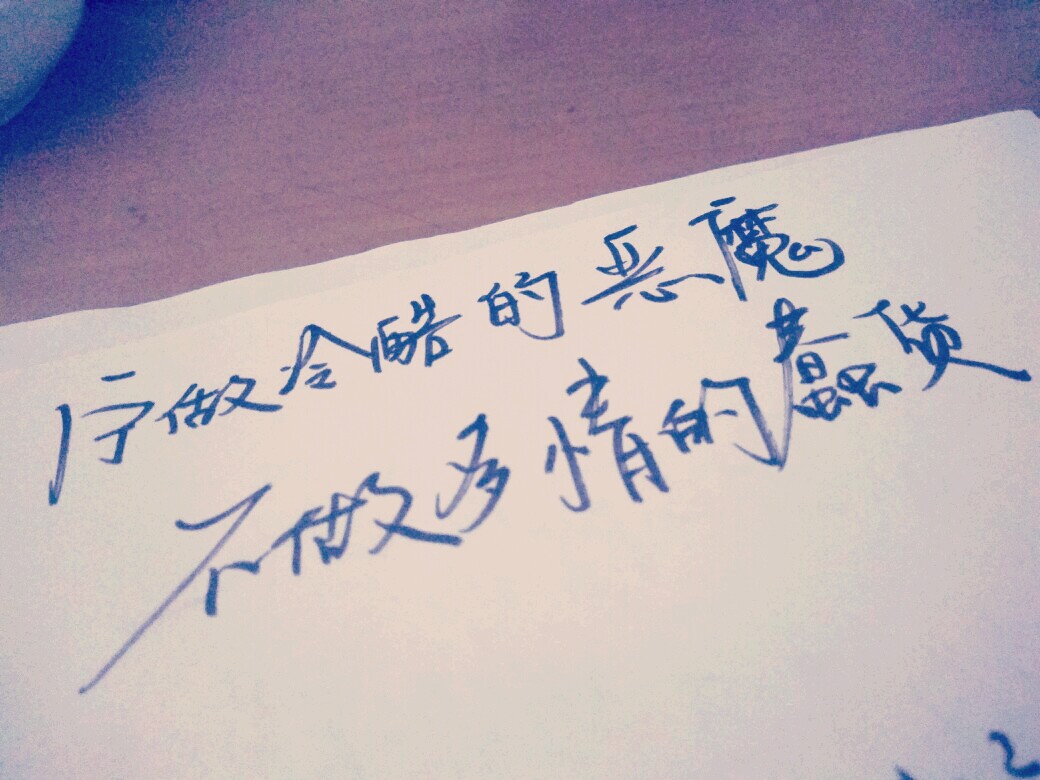 宁做冷酷的恶魔
不做多情的蠢货